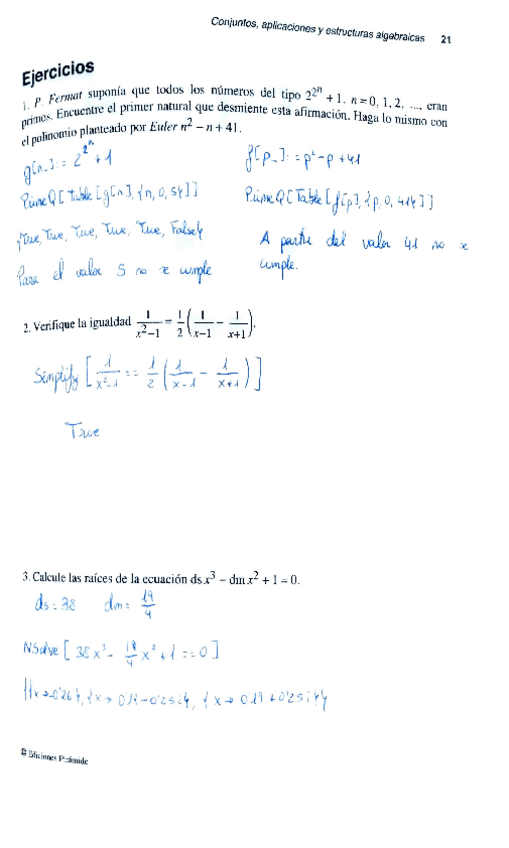 Conjuntos, aplicaciones y estructuras algebraicas 21
Ejercicios
1. P. Fermat suponía que todos los números del tipo 2^{2^n} + 1, n = 0, 1, 2, ..., eran
primos. Encuentre el primer natural que desmiente esta afirmación. Haga lo mismo con
el polinomio planteado por Euler n² − n + 41.
g[n_]:= 2^{2^n} + 1
PrimeQ[Table[g[n], {n, 0, 5}]]
{True, True, True, True, True, False}
Para el valor 5 no se cumple
f[p_]:= p² − p + 41
PrimeQ[Table[f[p], {p, 0, 41}]]
A partir del valor 41 no se
cumple.
2. Verifique la igualdad 1/(x²−1) = 1/2 (1/(x−1) − 1/(x+1)).
Simplify [1/(x²−1) == 1/2 (1/(x−1) − 1/(x+1))]
True
3. Calcule las raíces de la ecuación ds x³ − dm x² + 1 = 0.
ds = 38 dm = 19/4
NSolve [38x³ − 19/4 x² + 1 == 0]
{{x → -0'26}, {x → 0'19 − 0'25i}, {x → 0'19 + 0'25i}}
© Ediciones Pirámide